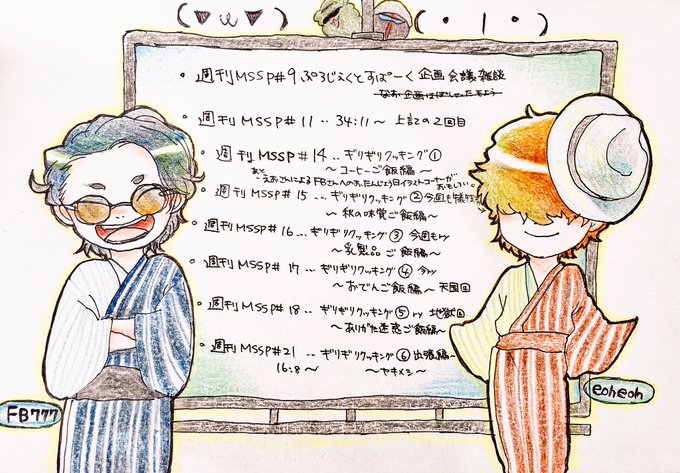 (▼ω▼)
(・|・)
・週刊MSSP#9 ぷろじぇくとすぱーく 企画会議雑談
なお企画はぽしゃったもよう
・週刊MSSP#11‥34:11〜上記の2回目
・週刊MSSP#14‥ギリギリクッキング①
〜コーヒーご飯編〜
あと
・えおさんによるFBさんへのおたんじょう日イラストコーナーがおもしろい。
・週刊MSSP#15‥ギリギリクッキング②今回も犠牲
〜秋の味覚ご飯編〜
・週刊MSSP#16‥ギリギリクッキング③今週もry
〜乳製品ご飯編〜
・週刊MSSP#17‥ギリギリクッキング④今ry
〜おでんご飯編〜天国回
・週刊MSSP#18‥ギリギリクッキング⑤ry地獄回
〜ありがた迷惑ご飯編〜
・週刊MSSP#21‥ギリギリクッキング⑥出張編〜
16:8〜 〜ヤキメシ〜
FB777
eoheoh